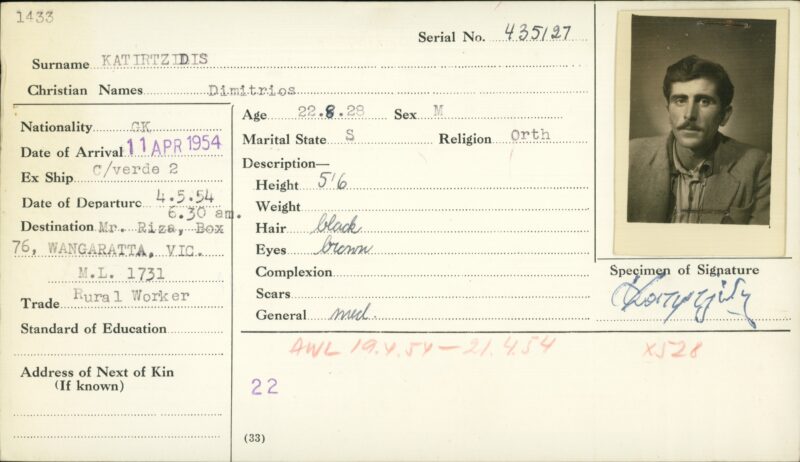 1433
Serial No. 435127
Surname KATIRTZIDIS
Christian Names Dimitrios
Nationality GK
Date of Arrival 11 APR 1954
Ex Ship C/verde 2
Date of Departure 4.5.54
6.30 am.
Destination Mr. Riza, Box
76, WANGARATTA, VIC.
M.L. 1731
Trade Rural Worker
Standard of Education
Address of Next of Kin
(If known)
Age 22.8.28 Sex M
Marital State S Religion Orth
Description—
Height 5'6
Weight
Hair black
Eyes brown
Complexion
Scars
General med.
Specimen of Signature
AWL 19.4.54 — 21.4.54 X528
22
(33)